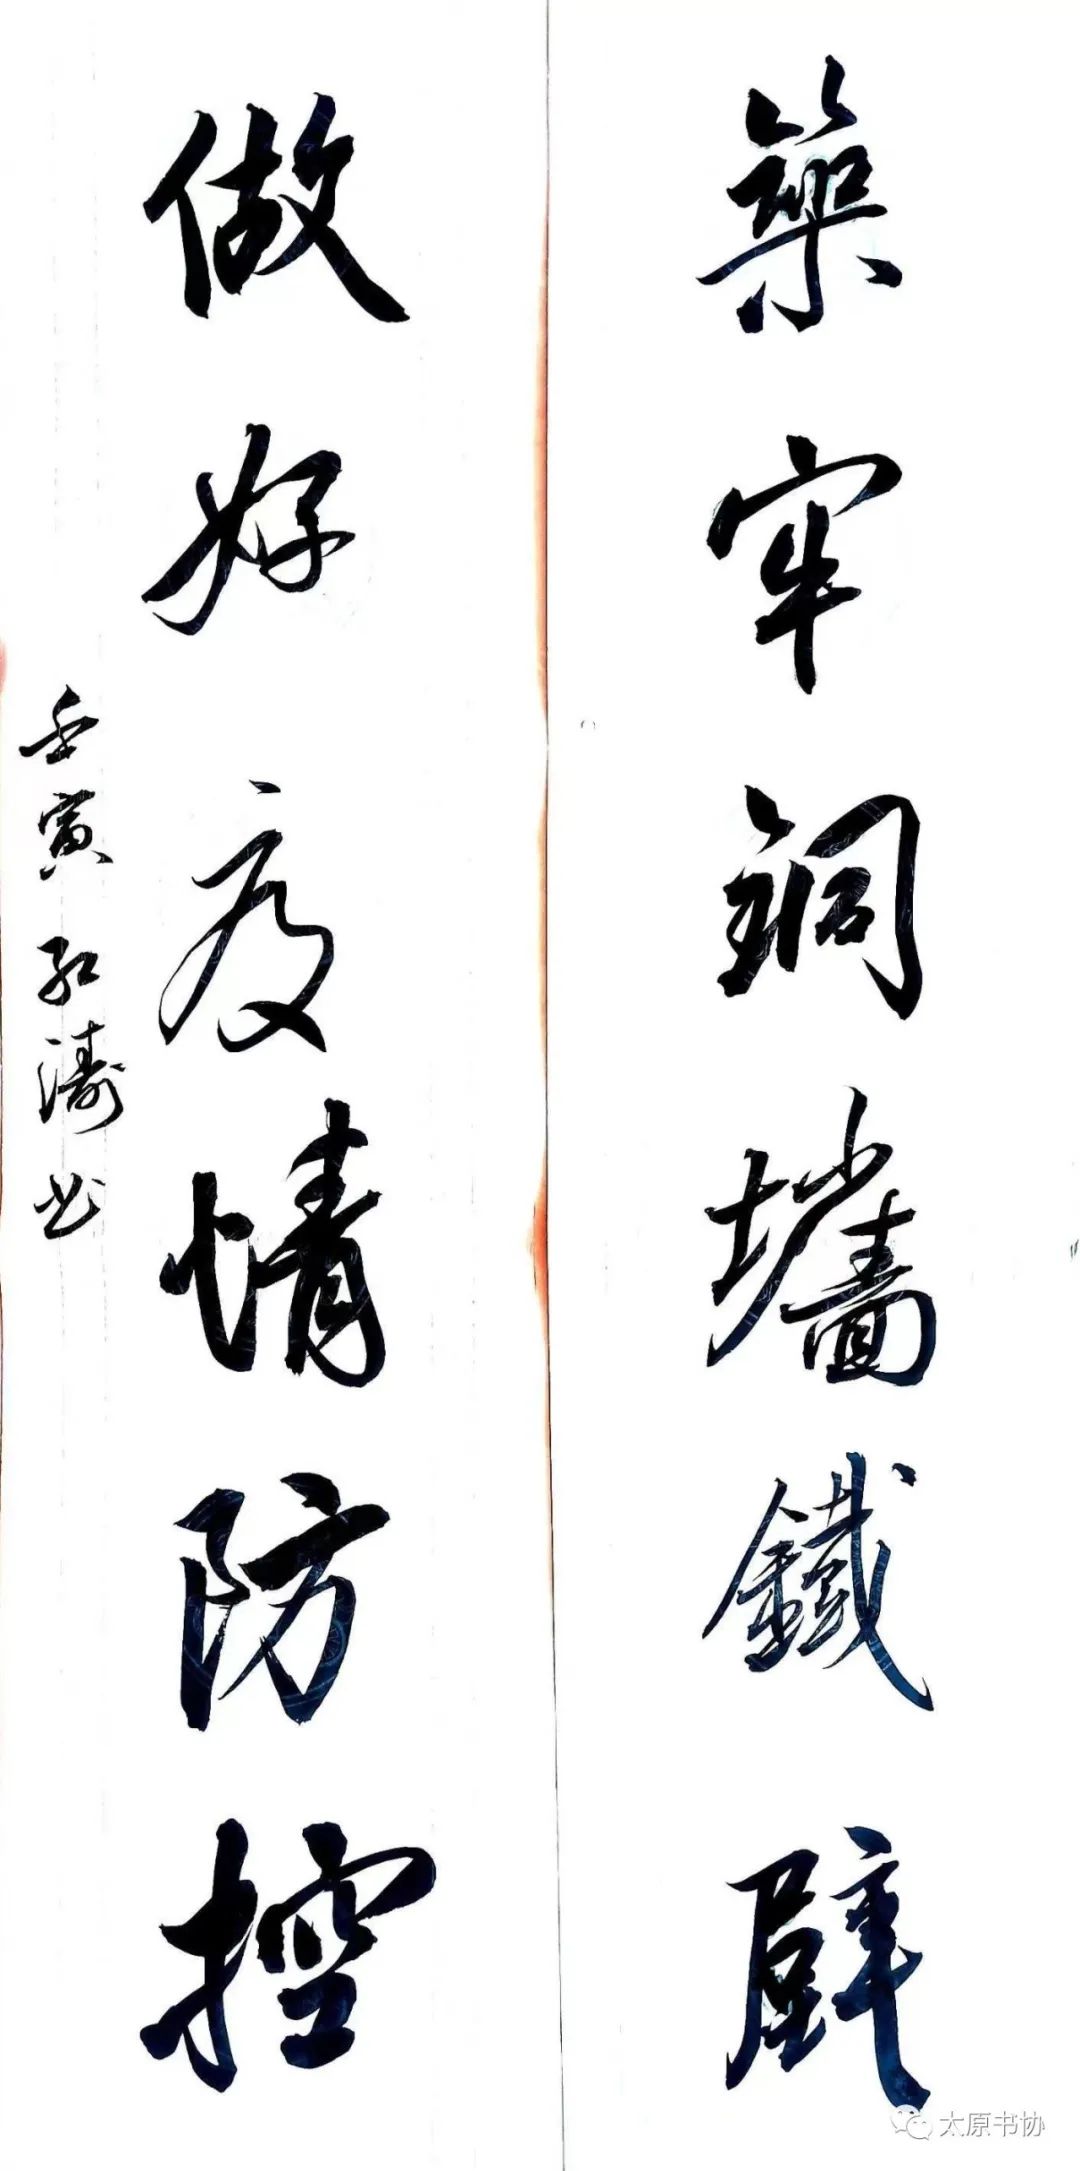 築牢銅墻鐵壁
做好疫情防控
壬寅 红濤书
太原书协